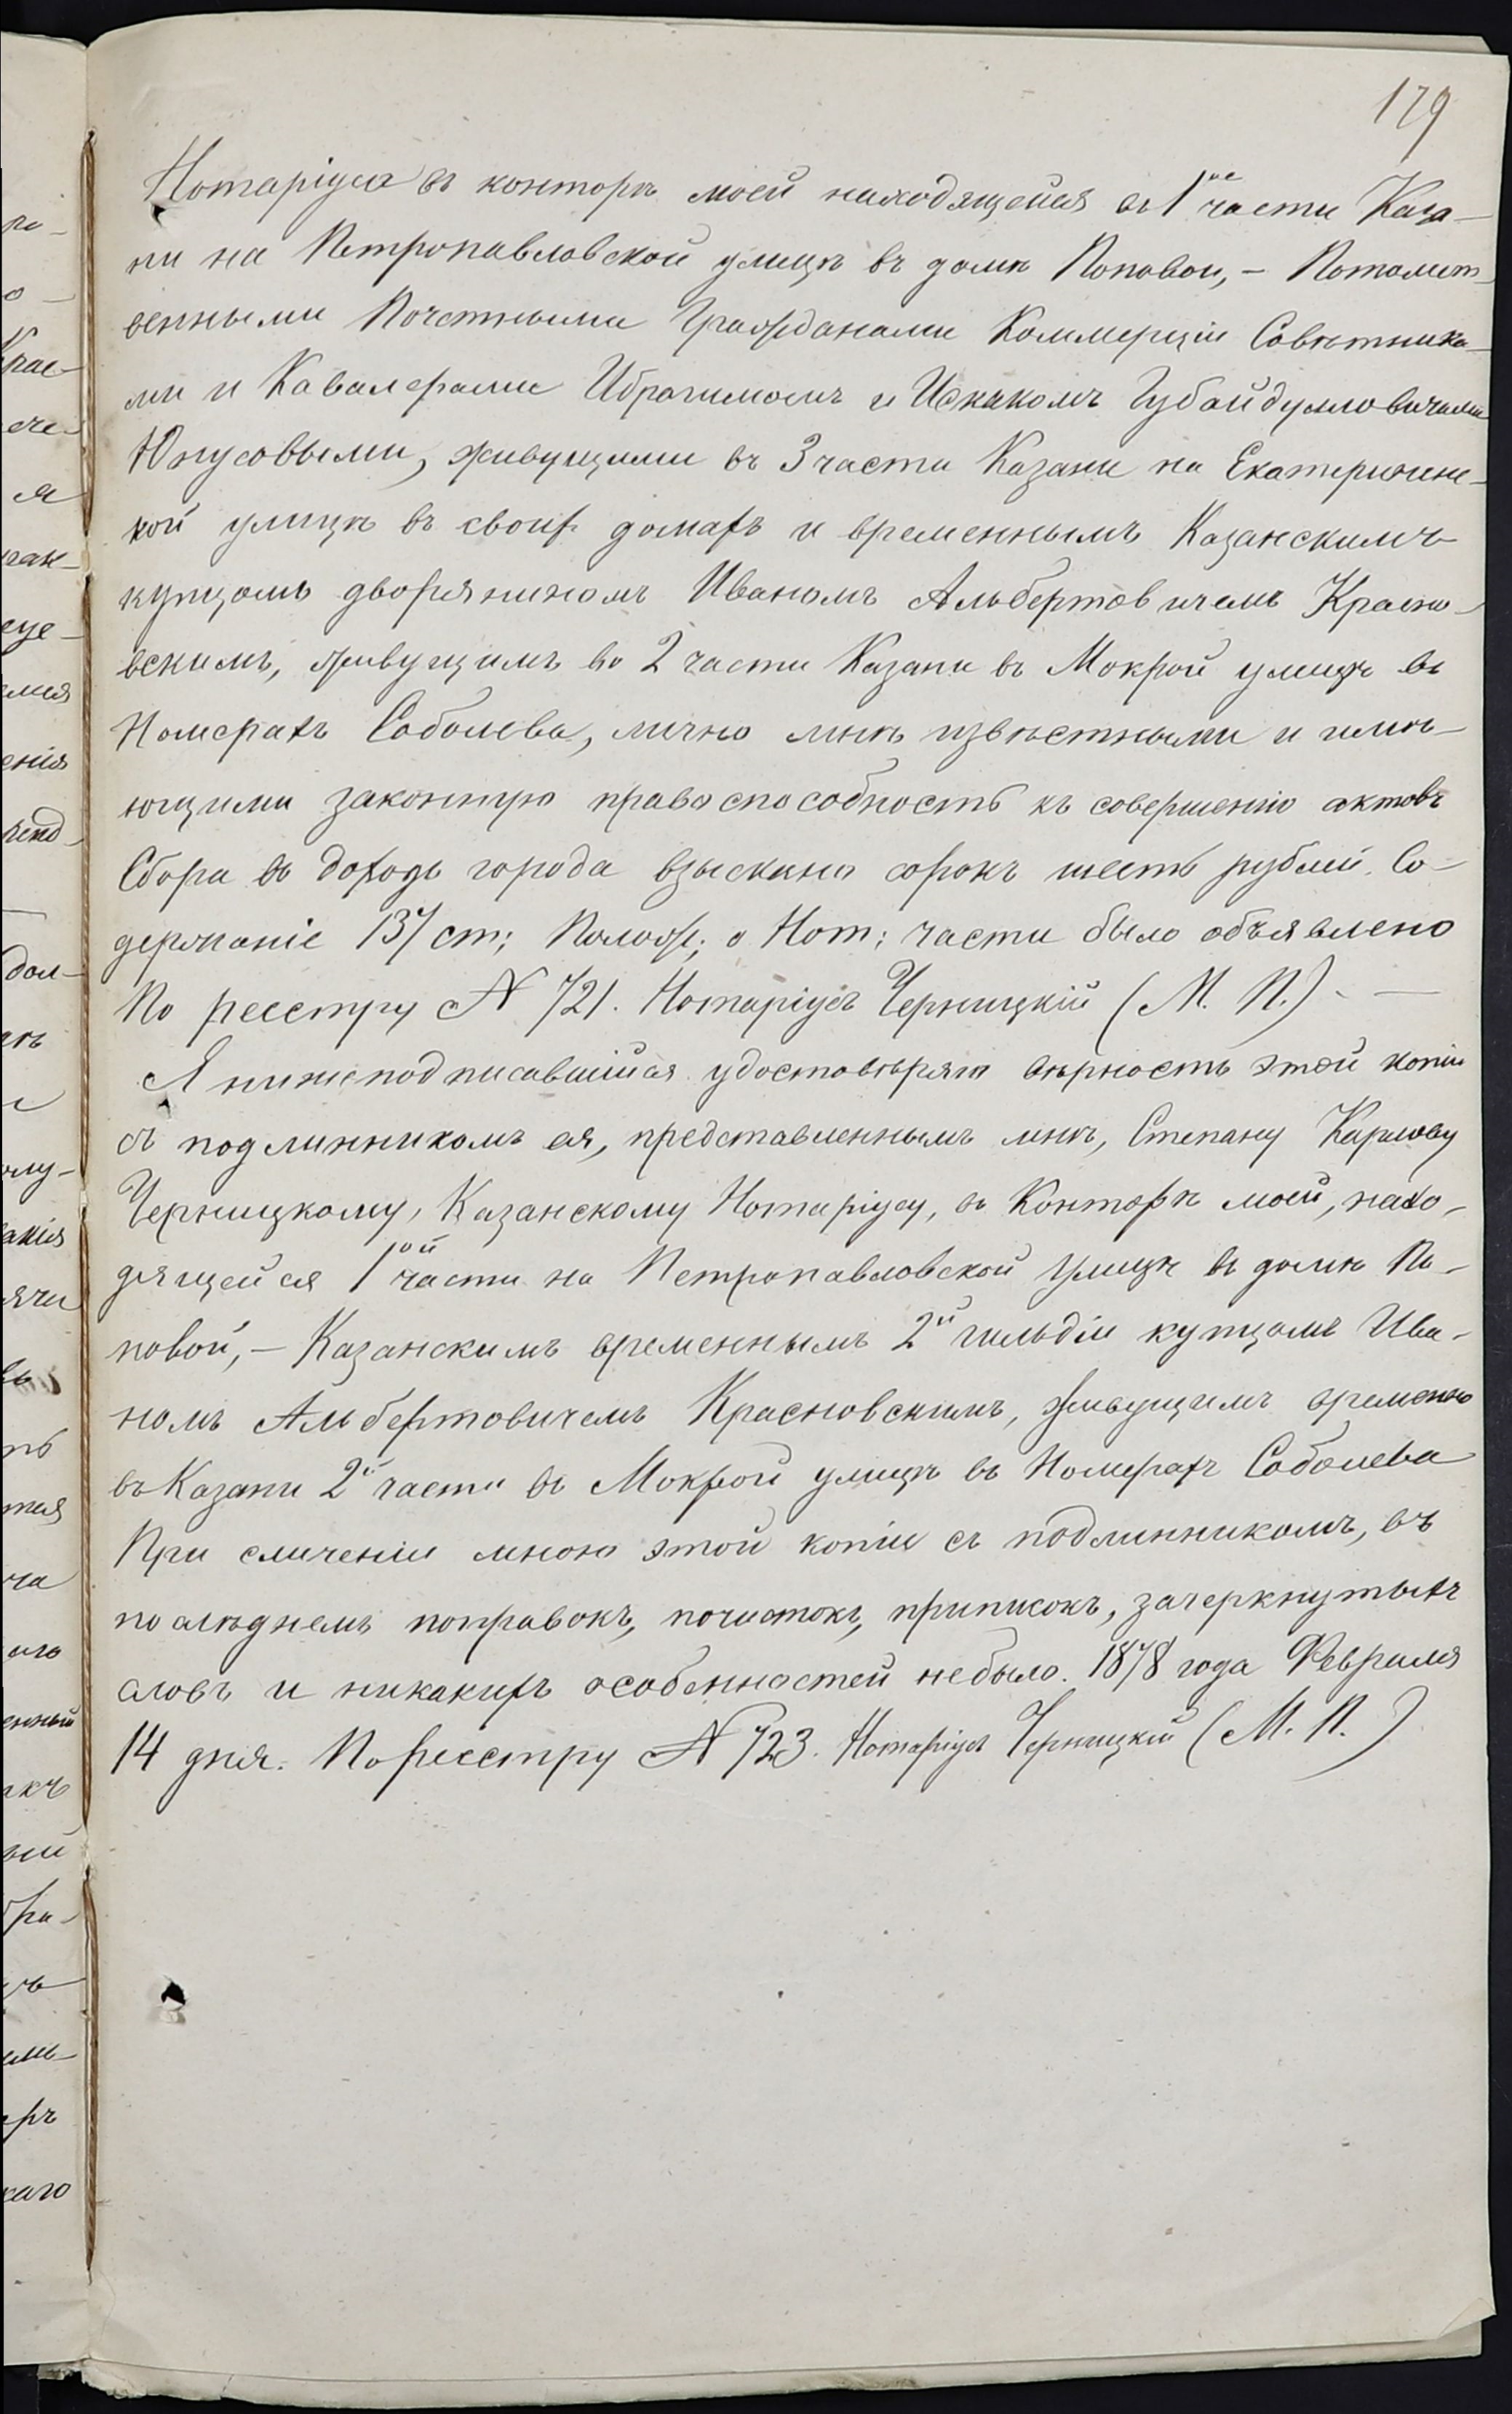 179
Нотаріуса въ конторѣ моей находящейся въ 1ой части Каза-
ни на Петропавловской улицѣ въ домѣ Поповой, – Потомст-
венными Почетными Гражданами Коммерціи Совѣтника-
ми и Кавалерами Ибрагимомъ и Исхакомъ Губайдулловичами
Юнусовыми, живущими въ 3 части Казани на Екатеринин-
кой улицѣ въ своихъ домахъ и временнымъ Казанскимъ
купцомъ дворяниномъ Иваномъ Альбертовичемъ Красно-
вскимъ, живущимъ во 2 части Казани въ Мокрой улицѣ въ
Номерахъ Соболева, лично мнѣ извѣстными и имѣ-
ющими законную правоспособность къ совершенію актовъ
Сбора въ доходъ города взыскано сорокъ шесть рублей. Со-
держаніе 137 ст; Полож; о Нот; части было объявлено
По реестру N 721. Нотаріусъ Черницкій (М. П.) –
Я нижеподписавшійся удостовѣряю вѣрность этой копіи
съ подлинникомъ ея, представленнымъ мнѣ, Степану Карлову
Черницкому, Казанскому Нотаріусу, въ Конторѣ моей, нахо-
дящейся 1ой части на Петропавловской Улицѣ въ домѣ По-
повой, – Казанскимъ временнымъ 2й гильдіи купцомъ Ива-
номъ Альбертовичемъ Красновскимъ, живущимъ временно
въ Казани 2й части въ Мокрой улицѣ въ Номерахъ Соболева
При сличеніи мною этой копіи съ подлинникомъ, въ
послѣднемъ поправокъ, почистокъ, приписокъ, зачеркнутыхъ
словъ и никакихъ особенностей небыло. 1878 года Февраля
14 дня. По реестру N 723. Нотаріусъ Черницкій (М. П.)